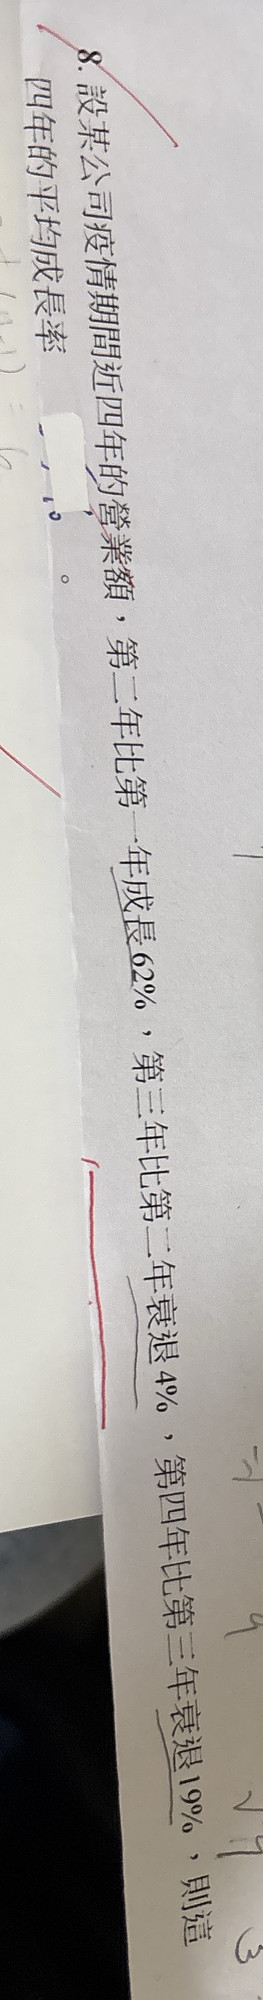 8. 設某公司疫情期間近四年的營業額，第二年比第一年成長62%，第三年比第二年衰退4%，第四年比第三年衰退19%，則這
四年的平均成長率 。